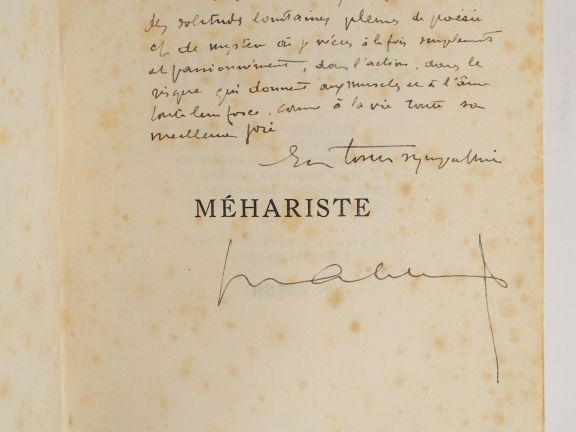 des solitudes lointaines pleines de poésie
et de mystère où je vécus à la fois simplement
et passionnément, dans l'action, dans le
risque qui donnent aux muscles et à l'âme
toute leur force, comme à la vie toute sa
meilleure joie
En toute sympathie
MÉHARISTE